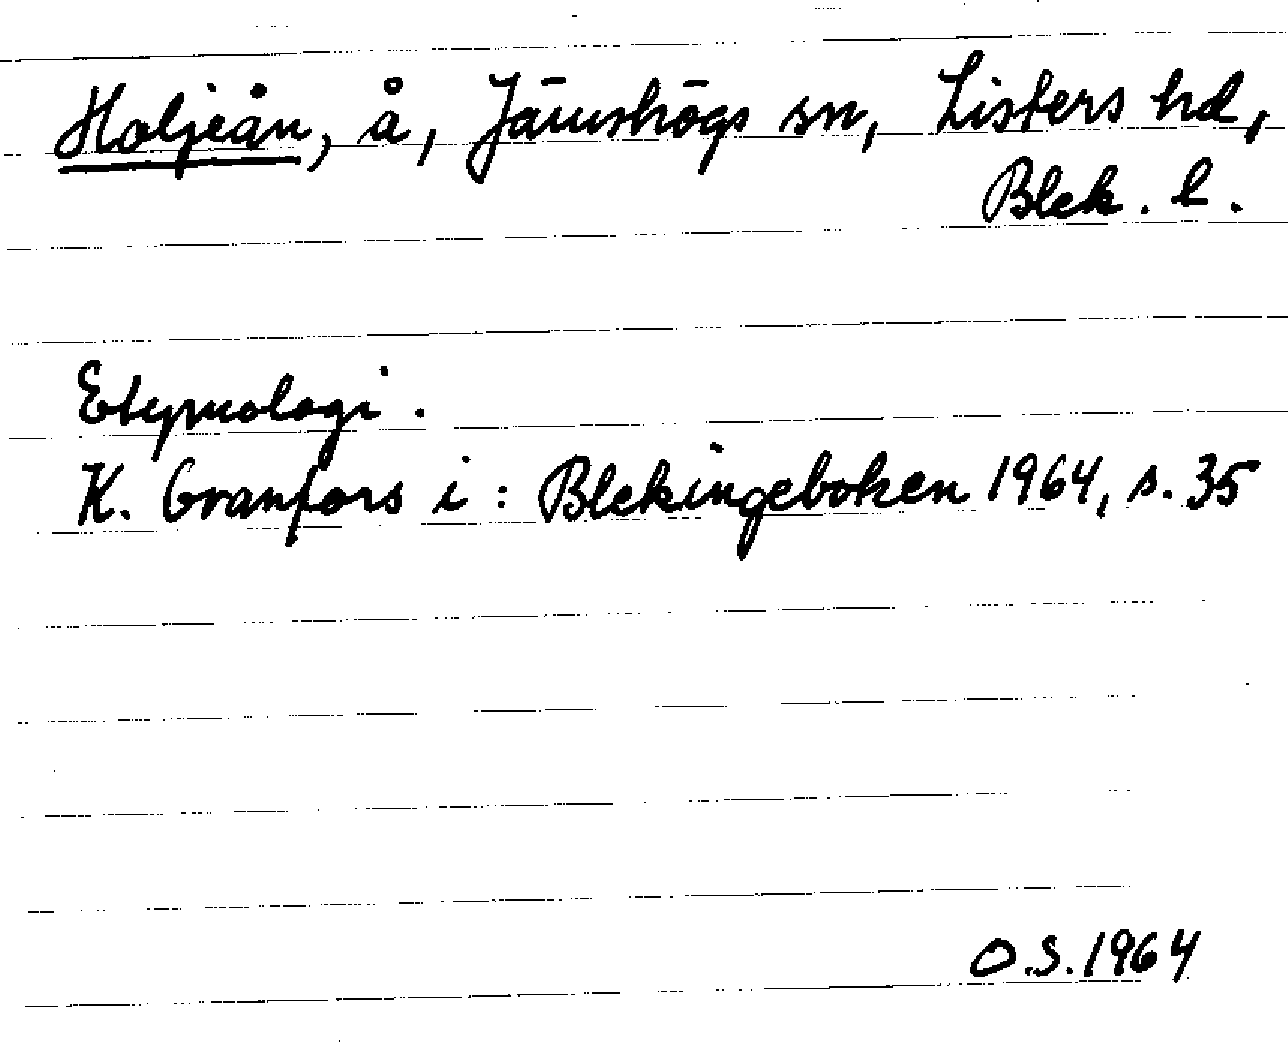 Holjeån, å, Jämshögs sn, Listers hd,
Blek. l.
Etymologi.
K. Granfors i: Blekingeboken 1964, s. 35
O.S. 1964